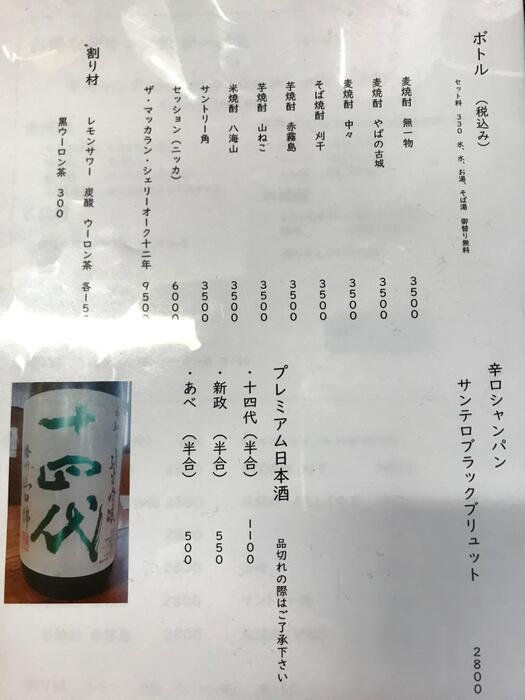 ボトル （税込み）
セット料 330 氷、水、お湯、そば湯 御替り無料
麦焼酎 無一物 3500
麦焼酎 やばの古城 3500
麦焼酎 中々 3500
そば焼酎 刈干 3500
芋焼酎 赤霧島 3500
芋焼酎 山ねこ 3500
米焼酎 八海山 3500
サントリー角 3500
セッション（ニッカ） 6000
ザ・マッカラン・シェリーオーク十二年 9500
割り材
レモンサワー 炭酸 ウーロン茶 各150
黒ウーロン茶 300
辛口シャンパン
サンテロブラックブリュット 2800
プレミアム日本酒
品切れの際はご了承下さい
・十四代 （半合） 1100
・新政 （半合） 550
・あべ （半合） 500
十四代